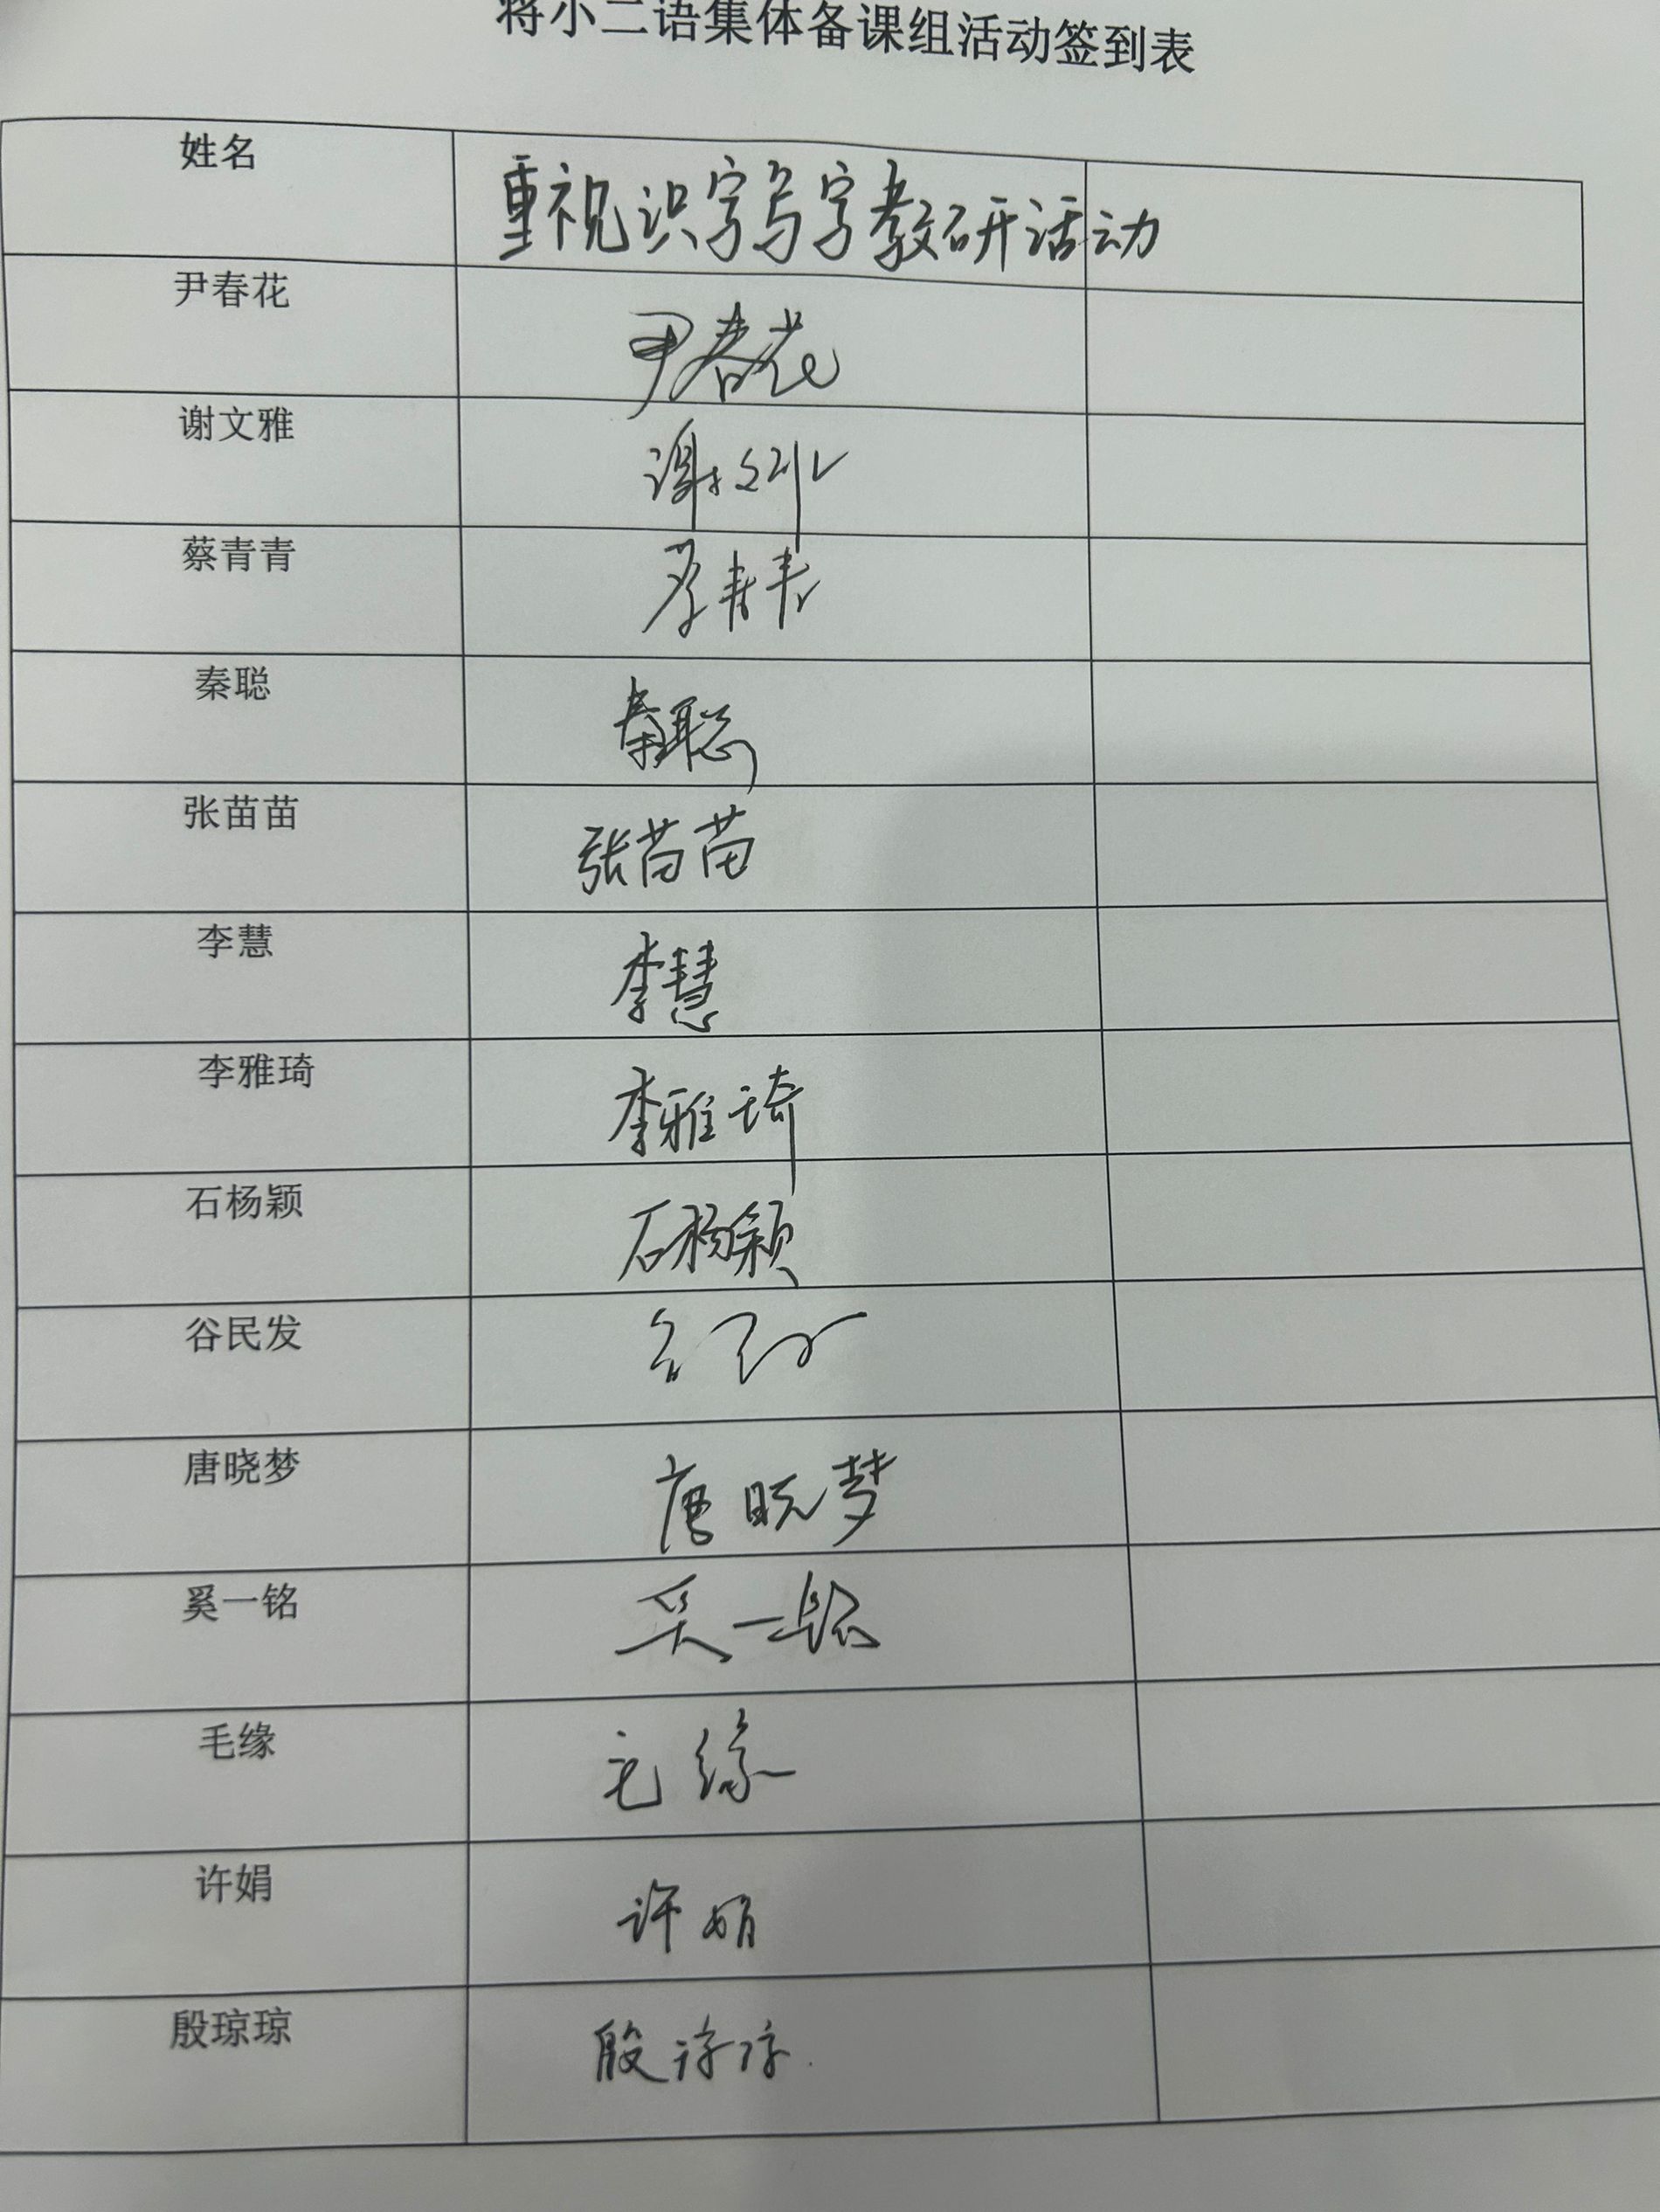 将小二语集体备课组活动签到表
姓名 重视识字写字教研活动
尹春花 尹春花
谢文雅 谢文雅
蔡青青 蔡青青
秦聪 秦聪
张苗苗 张苗苗
李慧 李慧
李雅琦 李雅琦
石杨颖 石杨颖
谷民发 谷民发
唐晓梦 唐晓梦
奚一铭 奚一铭
毛缘 毛缘
许娟 许娟
殷琼琼 殷琼琼